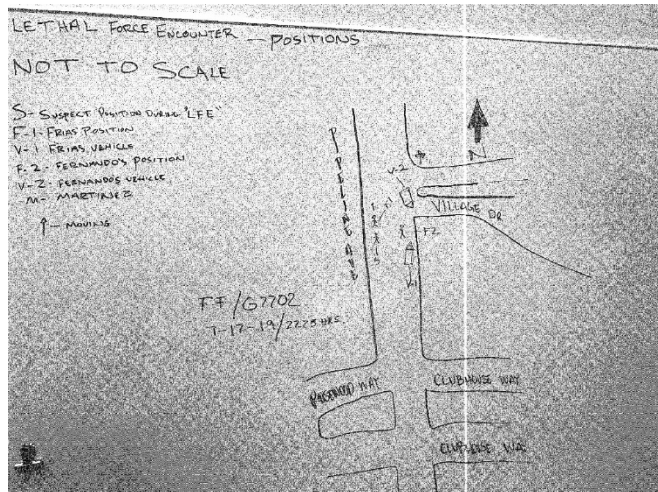 LETHAL FORCE ENCOUNTER — POSITIONS
NOT TO SCALE
S - SUSPECT POSITION DURING "LFE"
F-1 - FRIAS POSITION
V-1 FRIAS VEHICLE
F-2 - FERNANDO'S POSITION
V-2 - FERNANDO'S VEHICLE
M - MARTINEZ
↑ - MOVING
PIPELINE AVE
N
V-2
VILLAGE DR
F2
V-1
FF/G7702
1-17-19/2225 HRS.
WAY
CLUBHOUSE WAY
CLUBHOUSE WA